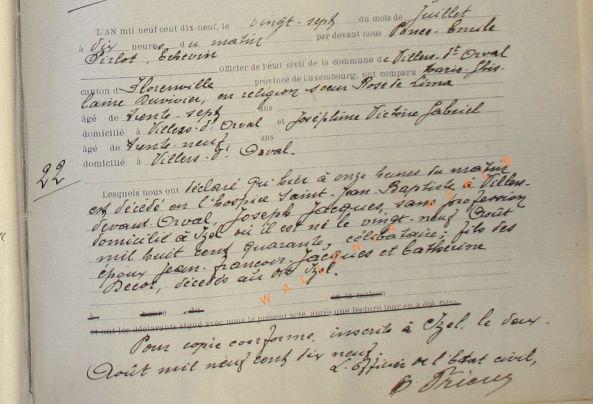 L'AN mil neuf cent dix-neuf, le vingt-sept du mois de Juillet
à dix heures du matin par devant nous Ponce Emile
Pirlot, Echevin
officier de l'état civil de la commune de Villers-dt-Orval
canton de Florenville province de Luxembourg, ont comparu Marie-Ghis-
laine Duvivier, en religion sœur Rose de Lima
âgé de trente-sept ans
domicilié à Villers-dt-Orval et Joséphine Victoire Gabriel
âgé de trente-neuf ans
domicilié à Villers-dt-Orval.
22
Lesquels nous ont déclaré qu'hier à onze heures du matin
est décédé en l'hospice Saint-Jean-Baptiste à Villers-
devant-Orval, Joseph Jacques, sans profession
domicilié à Izel où il est né le vingt-neuf Août
mil huit cent quarante, célibataire; fils des
époux Jean-François Jacques et Catherine
décédés au dit Izel.
à heure du en la maison
et ont les déclarants signé avec nous le présent acte, après que lecture leur en a été faite.
Pour copie conforme, inscrite à Izel le deux
Août mil neuf cent dix neuf
L'officier de l'Etat civil,